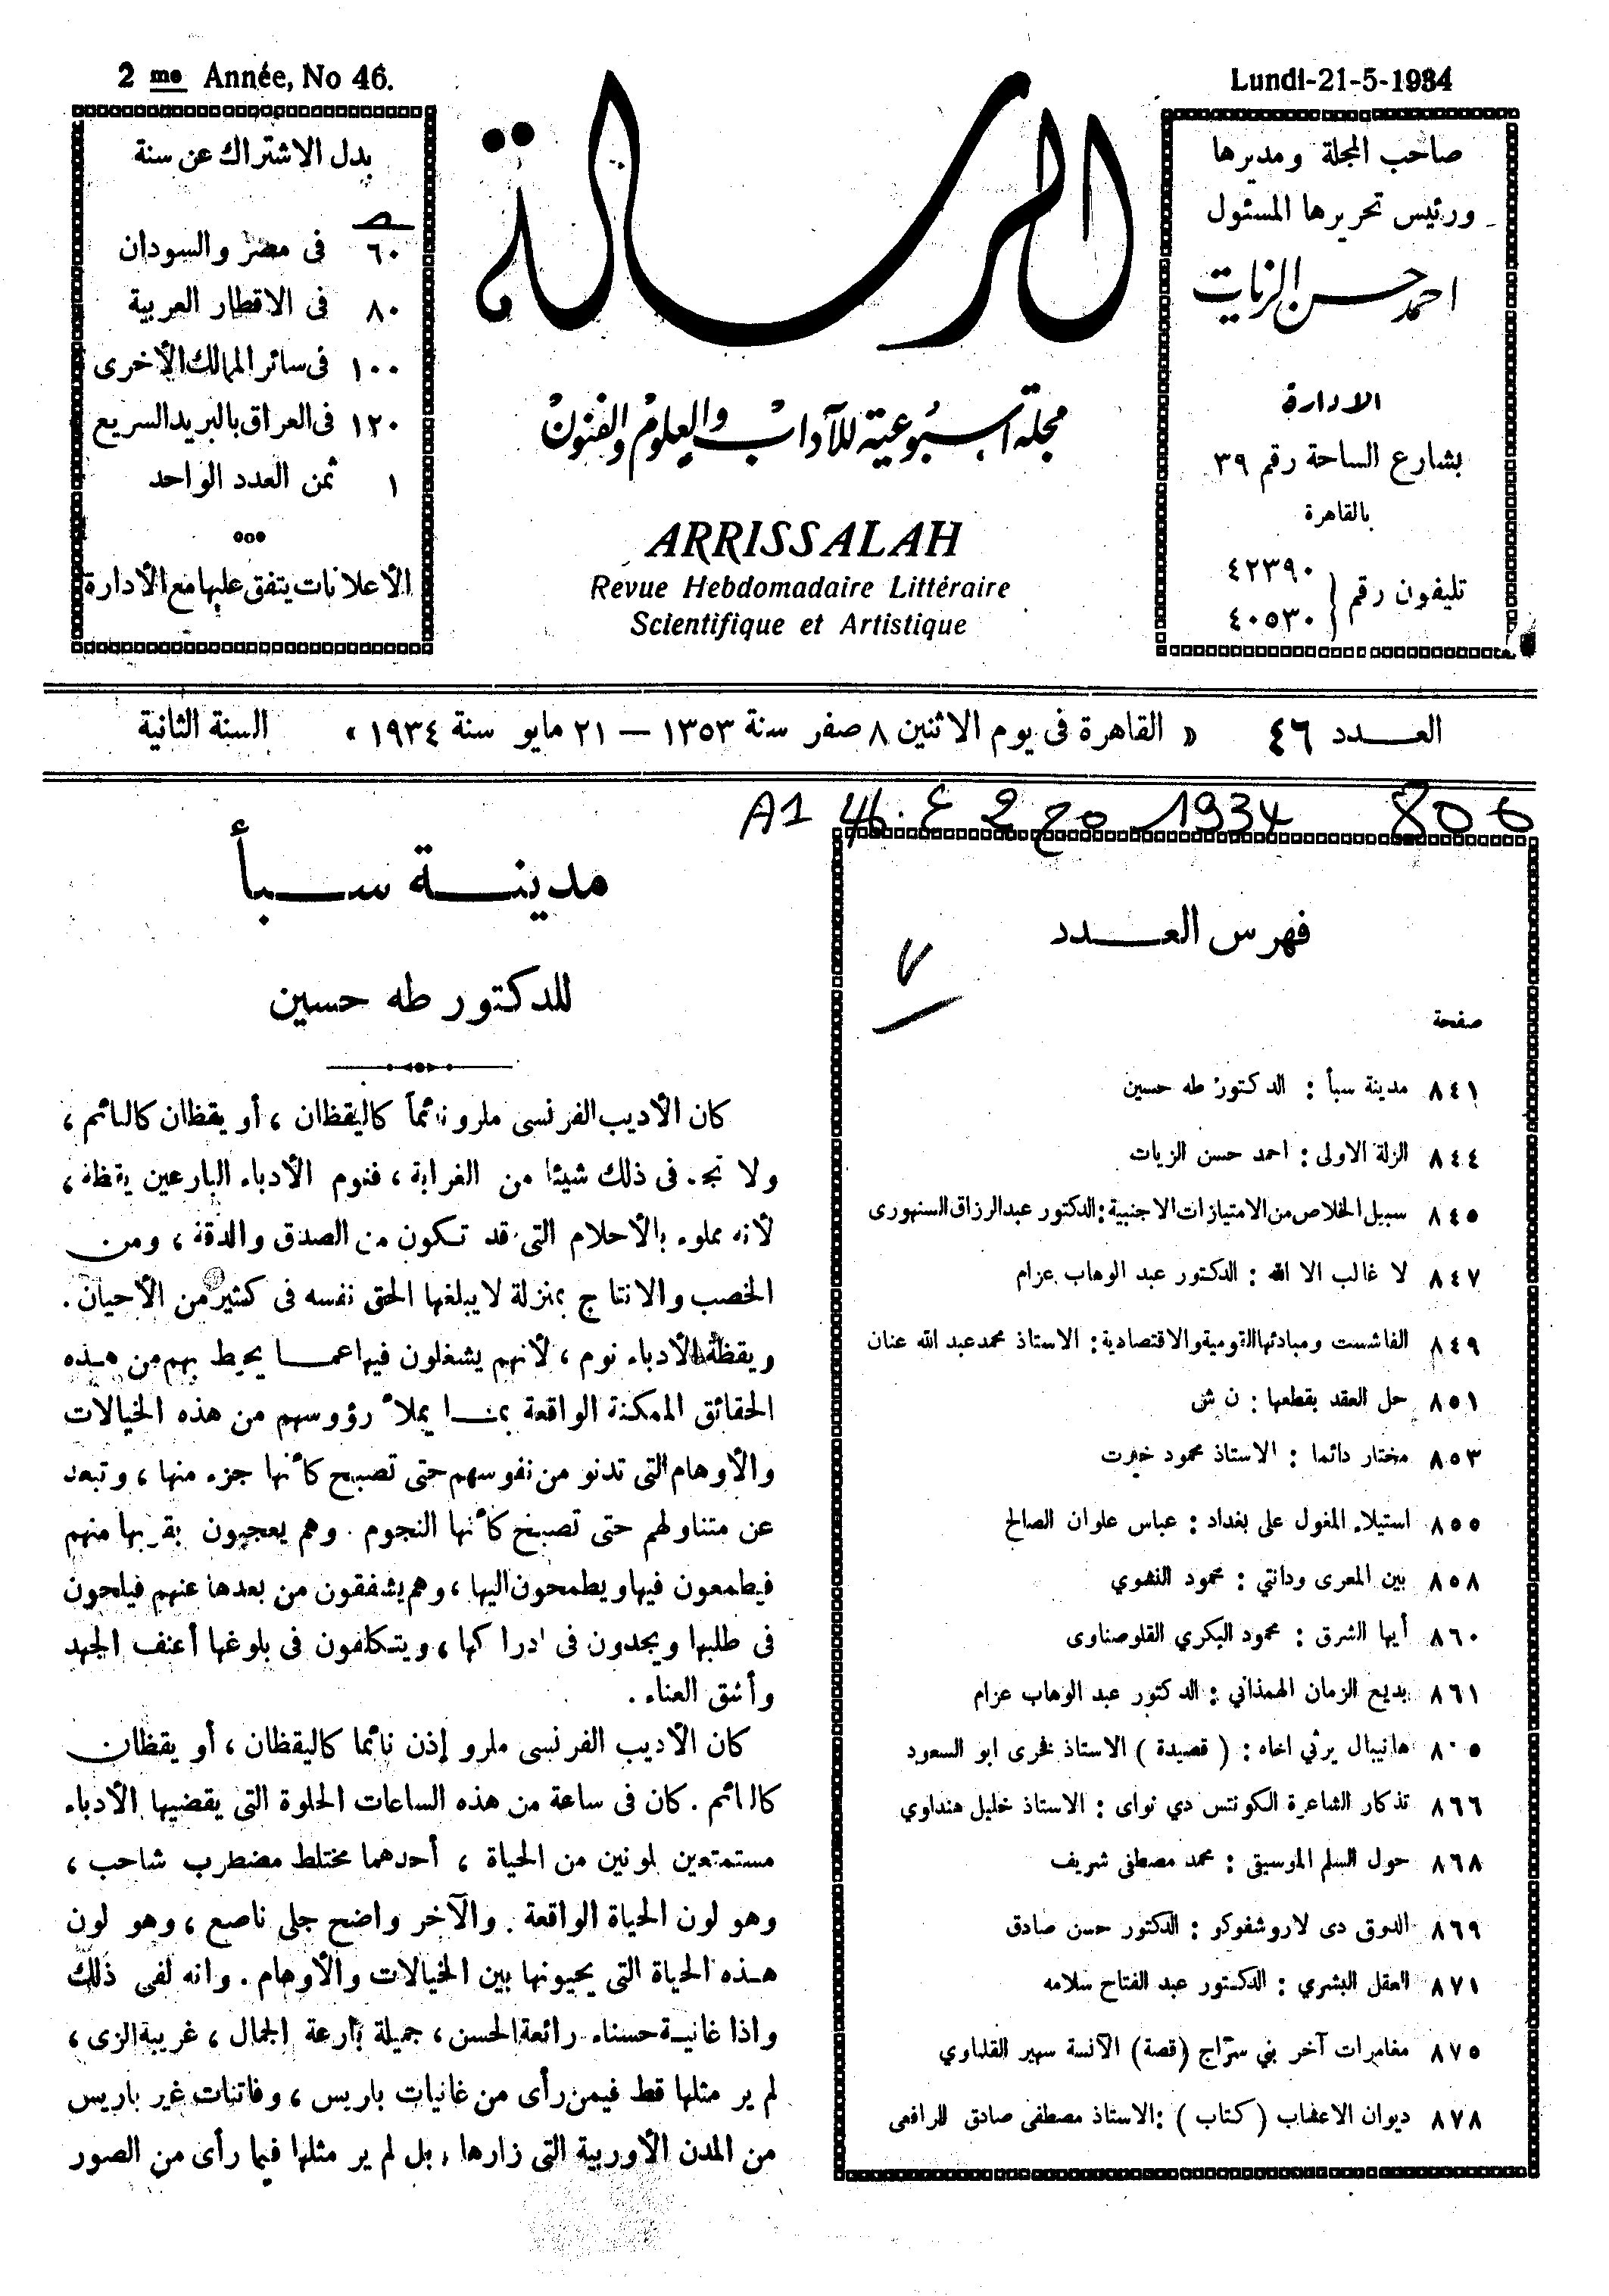 2 me Année, No 46.
Lundi-21-5-1934
صاحب المجلة ومديرها
ورئيس تحريرها المسئول
احمد حسن الزيات
الادارة
بشارع الساحة رقم ٣٩
بالقاهرة
تليفون رقم
٤٢٣٩٠
٤٠٥٣٠
الرسالة
مجلة أسبوعية للآداب والعلوم والفنون
ARRISSALAH
Revue Hebdomadaire Littéraire
Scientifique et Artistique
بدل الاشتراك عن سنة
ص
٦٠ فى مصر والسودان
٨٠ فى الاقطار العربية
١٠٠ فى سائر الممالك الأخرى
١٢٠ فى العراق بالبريد السريع
١ ثمن العدد الواحد
الأعلانات يتفق عليها مع الأدارة
العـــدد ٤٦ « القاهرة فى يوم الاثنين ٨ صفر سنة ١٣٥٣ — ٢١ مايو سنة ١٩٣٤ » السنة الثانية
A1 46. 1934 806
فهرس العـــدد
صفحة
٨٤١ مدينة سبأ : الدكتور طه حسين
٨٤٤ الزلة الاولى : احمد حسن الزيات
٨٤٥ سبيل الخلاص من الامتيازات الاجنبية : الدكتور عبد الرزاق السنهورى
٨٤٧ لا غالب الا الله : الدكتور عبد الوهاب عزام
٨٤٩ الفاشست ومبادئها القومية والاقتصادية : الاستاذ محمد عبد الله عنان
٨٥١ حل العقد بقطعها : ن ش
٨٥٣ مختار دائما : الاستاذ محمود خيرت
٨٥٥ استيلاء المغول على بغداد : عباس علوان الصالح
٨٥٨ بين المعرى ودانتي : محمود النشوي
٨٦٠ أيها الشرق : محمود البكري القلوصناوى
٨٦١ بديع الزمان الهمذاني : الدكتور عبد الوهاب عزام
٨٠٥ هانيبال يرثي اخاه : ( قصيدة ) الاستاذ فخرى ابو السعود
٨٦٦ تذكار الشاعرة الكونتس دي نواى : الاستاذ خليل هنداوي
٨٦٨ حول السلم الموسيقى : محمد مصطفى شريف
٨٦٩ الدوق دى لاروشفوكو : الدكتور حسن صادق
٨٧١ العقل البشري : الدكتور عبد الفتاح سلامه
٨٧٥ مغامرات آخر بني سرّاج (قصة) الآنسة سهير القلماوي
٨٧٨ ديوان الاعشاب ( كتاب ) : الاستاذ مصطفى صادق الرافعى
مدينـــة ســـبأ
للدكتور طه حسين
كان الأديب الفرنسى ملرو نائماً كاليقظان ، أو يقظان كالنائم ،
ولا تجد فى ذلك شيئا من الغرابة ، فنوم الأدباء البارعين يقظة ،
لأنه مملوء بالأحلام التى قد تكون من الصدق والدقة ، ومن
الخصب والانتاج بمنزلة لا يبلغها الحق نفسه فى كثير من الأحيان .
ويقظة الأدباء نوم ، لأنهم يشغلون فيها عما يحيط بهم من هذه
الحقائق الممكنة الواقعة بما يملأ رؤوسهم من هذه الخيالات
والأوهام التى تدنو من نفوسهم حتى تصبح كأنها جزء منها ، وتبعد
عن متناولهم حتى تصبح كأنها النجوم . وهم يعجبون بقربها منهم
فيطمعون فيها ويطمحون اليها ، وهم يشفقون من بعدها عنهم فيلحون
فى طلبها ويجدون فى ادراكها ، ويتكلفون فى بلوغها أعنف الجهد
وأشق العناء .
كان الأديب الفرنسى ملرو إذن نائما كاليقظان ، أو يقظان
كالنائم . كان فى ساعة من هذه الساعات الحلوة التى يقضيها الأدباء
مستمتعين لونين من الحياة ، أحدهما مختلط مضطرب شاحب ،
وهو لون الحياة الواقعة . والآخر واضح جلى ناصع ، وهو لون
هذه الحياة التى يحيونها بين الخيالات والأوهام . وانه لفى ذلك
واذا غانية حسناء رائعة الحسن ، جميلة بارعة الجمال ، غريبة الزى ،
لم ير مثلها قط فيمن رأى من غانيات باريس ، وفاتنات غير باريس
من المدن الأوربية التى زارها ، بل لم ير مثلها فيما رأى من الصور